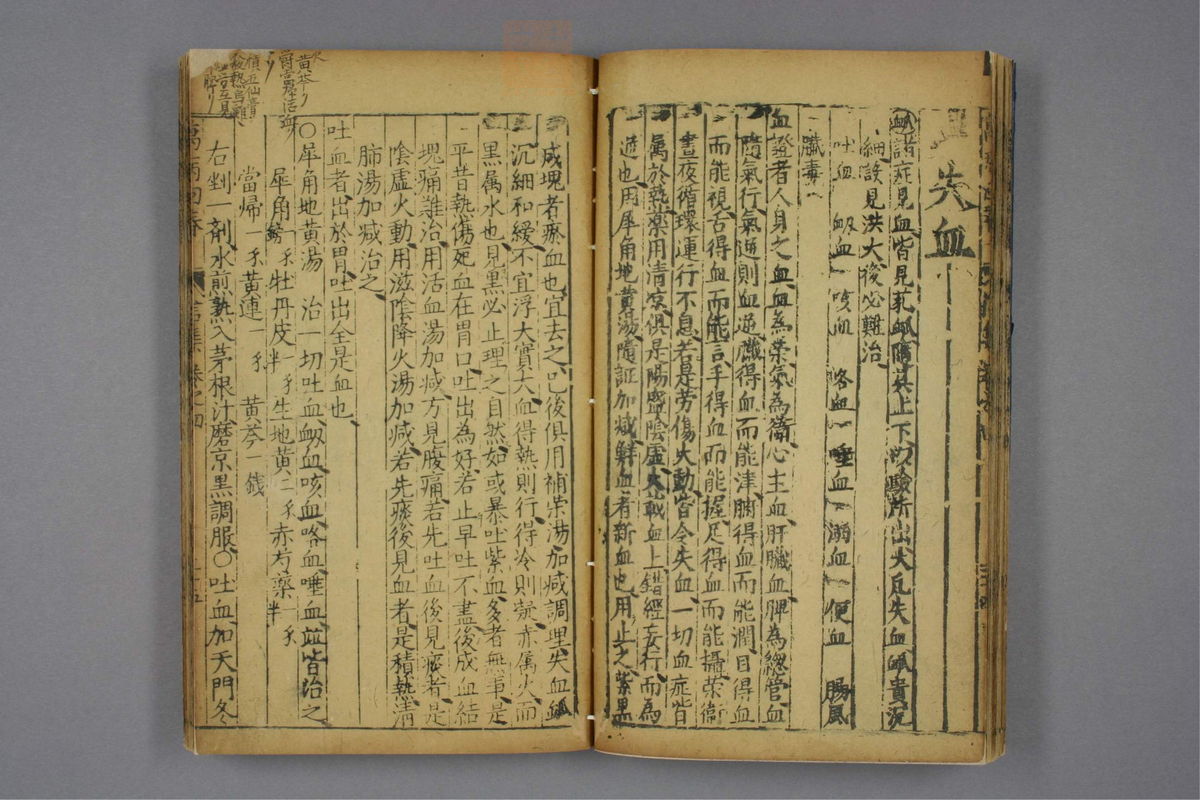 失血
脈諸症見血皆見芤脈隨其上下以驗所出大凡失血脈貴沉
細設見洪大後必難治
吐血 衂血 咳血 咯血 唾血 溺血 便血 腸風
臟毒
血證者人身之血血為榮氣為衞心主血肝臟血脾為總管血
隨氣行氣逆則血逆臟得血而能津腑得血而能潤目得血
而能視舌得血而能言手得血而能握足得血而能攝榮衞
晝夜循環運行不息若是勞傷火動皆令失血一切血症皆
屬於熱藥用清凉俱是陽盛陰虛火載血上錯經妄行而為
逆也用犀角地黃湯隨証加减鮮血者新血也用止之紫黑
成塊者瘀血也宜去之已後俱用補榮湯加减調理失血脈
沉細和緩不宜浮大實大血得熱則行得冷則凝赤属火而
黑属水也見黑必止理之自然如或暴吐紫血多者無事是
平昔熱傷死血在胃口吐出為好若止早吐不盡後成血結
塊痛難治用活血湯加减方見腹痛若先吐血後見痰者是
陰虛火動用滋陰降火湯加减若先痰後見血者是積熱清
肺湯加减治之
吐血者出於胃吐出全是血也
○犀角地黃湯 治一切吐血衂血咳血咯血唾血並皆治之
犀角 牡丹皮 生地黃二 赤芍藥一
當歸一 黃連一 黃芩一錢
右剉一劑水煎熟入茅根汁磨京墨調服○吐血加天門冬
卷之四